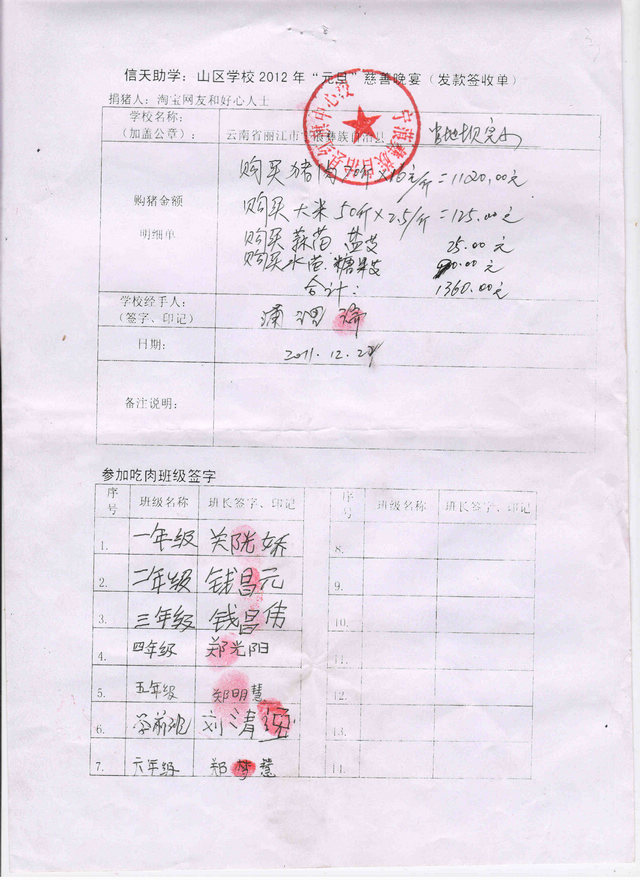 信天助学：山区学校2012年“元旦”慈善晚宴（发款签收单）
捐猪人：淘宝网友和好心人士
学校名称：
（加盖公章）：
云南省丽江市宁蒗彝族自治县
购猪金额
明细单
购买猪肉70斤×16元/斤=1120.00元
购买大米50斤×2.5/斤=125.00元
购买蒜苗 盐巴 25.00元
购买 糖果 90.00元
合计： 1360.00元
学校经手人：
（签字、印记）
日期：
2011.12.2
备注说明：
参加吃肉班级签字
序号 班级名称 班长签字、印记 序号 班级名称 班长签字、印记
1. 一年级 关 娇 8.
2. 二年级 钱昌元 9.
3. 三年级 钱昌伟 10.
4. 四年级 郑光阳 11.
5. 五年级 郑明慧 12.
6. 学前班 刘清 13.
7. 六年级 郑梦慧 14.